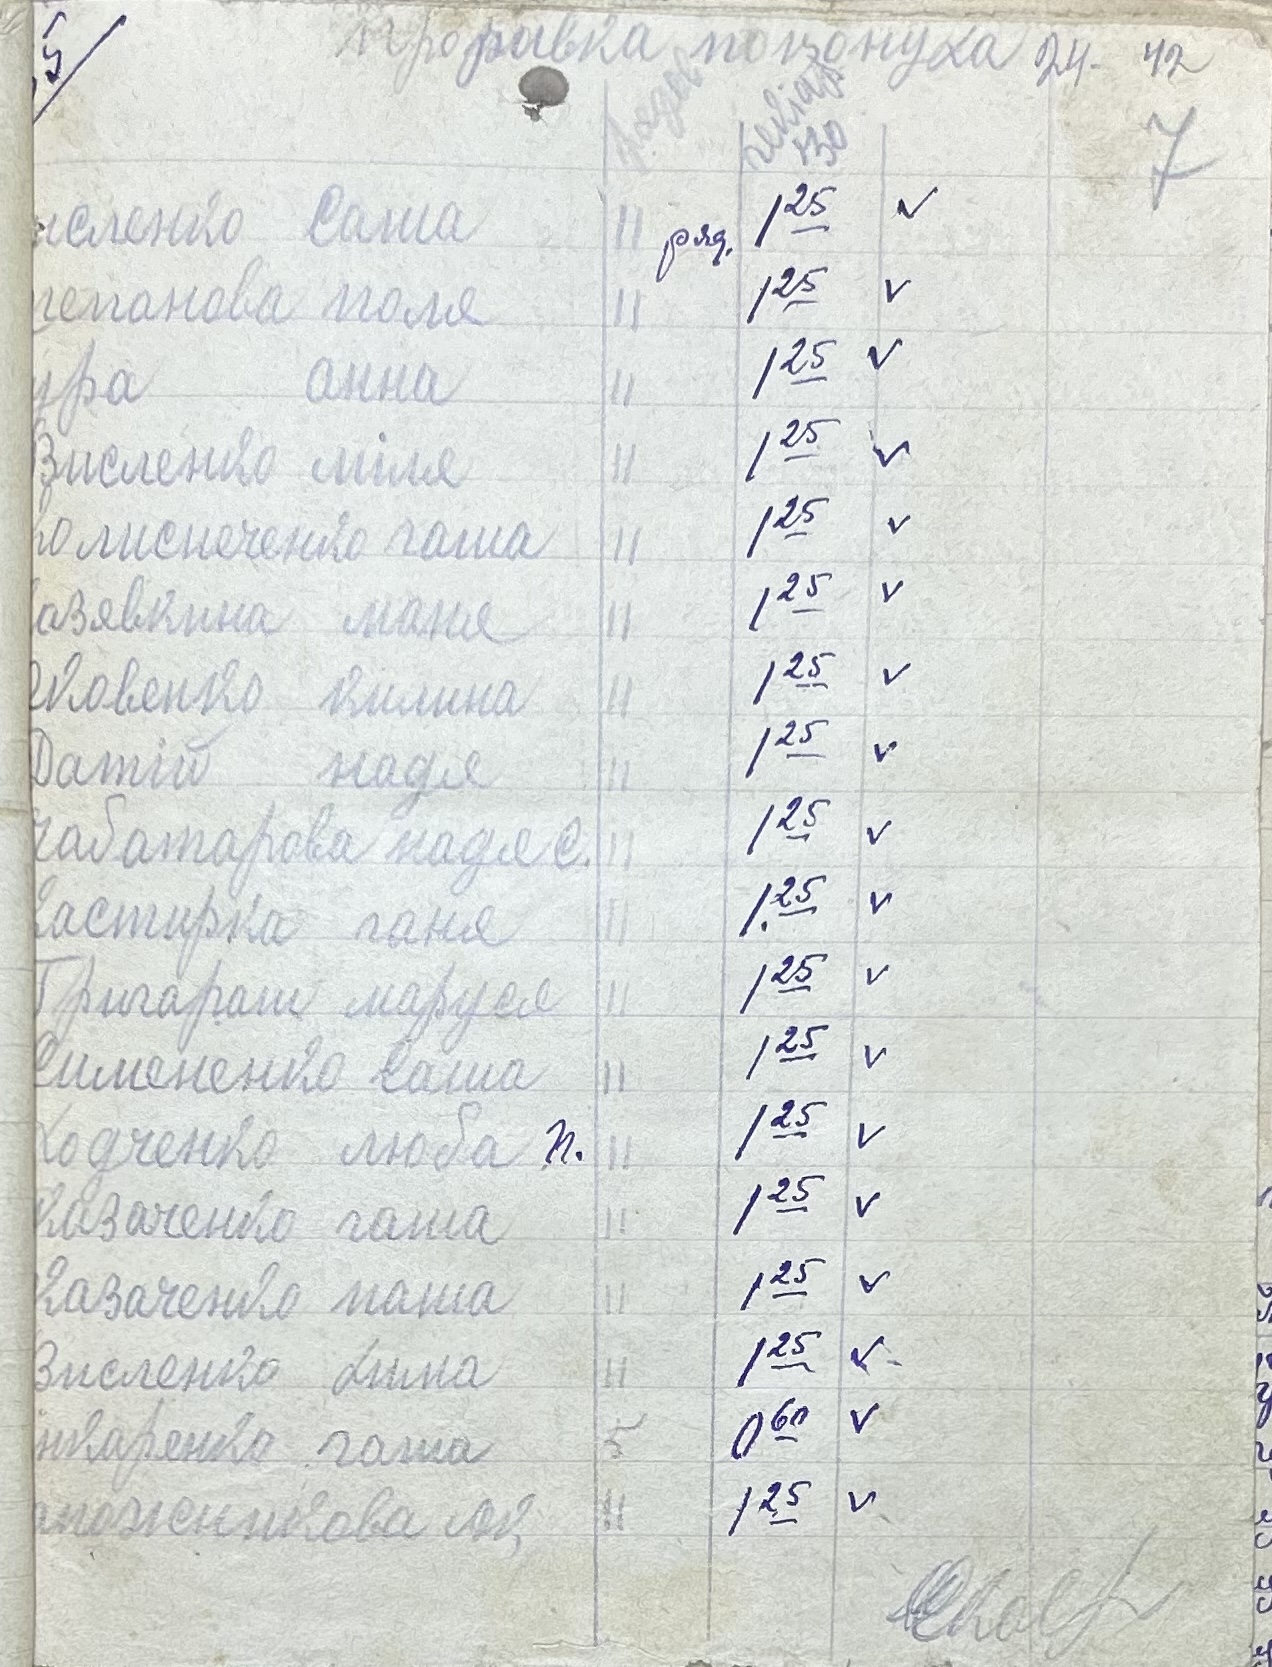 5
Прорывка 24- 42
7
рядов
130
исленко Саша 11 ряд. 1 25 v
тепанова поля 11 1 25 v
ура анна 11 1 25 v
Висленко міля 11 1 25 v
гаша 11 1 25 v
азявкина маня 11 1 25 v
яковенко килина 11 1 25 v
Датій надя 11 1 25 v
чабатарова надя С. 11 1 25 v
Кастирка ганя 11 1. 25 v
Григараш маруся 11 1 25 v
Симененко Саша 11 1 25 v
Ходченко люба п. 11 1 25 v
Казаченко гаша 11 1 25 v
Казаченко паша 11 1 25 v
Висленко 11 1 25 v
нкаренко гаша 5 0 60 v
11 1 25 v